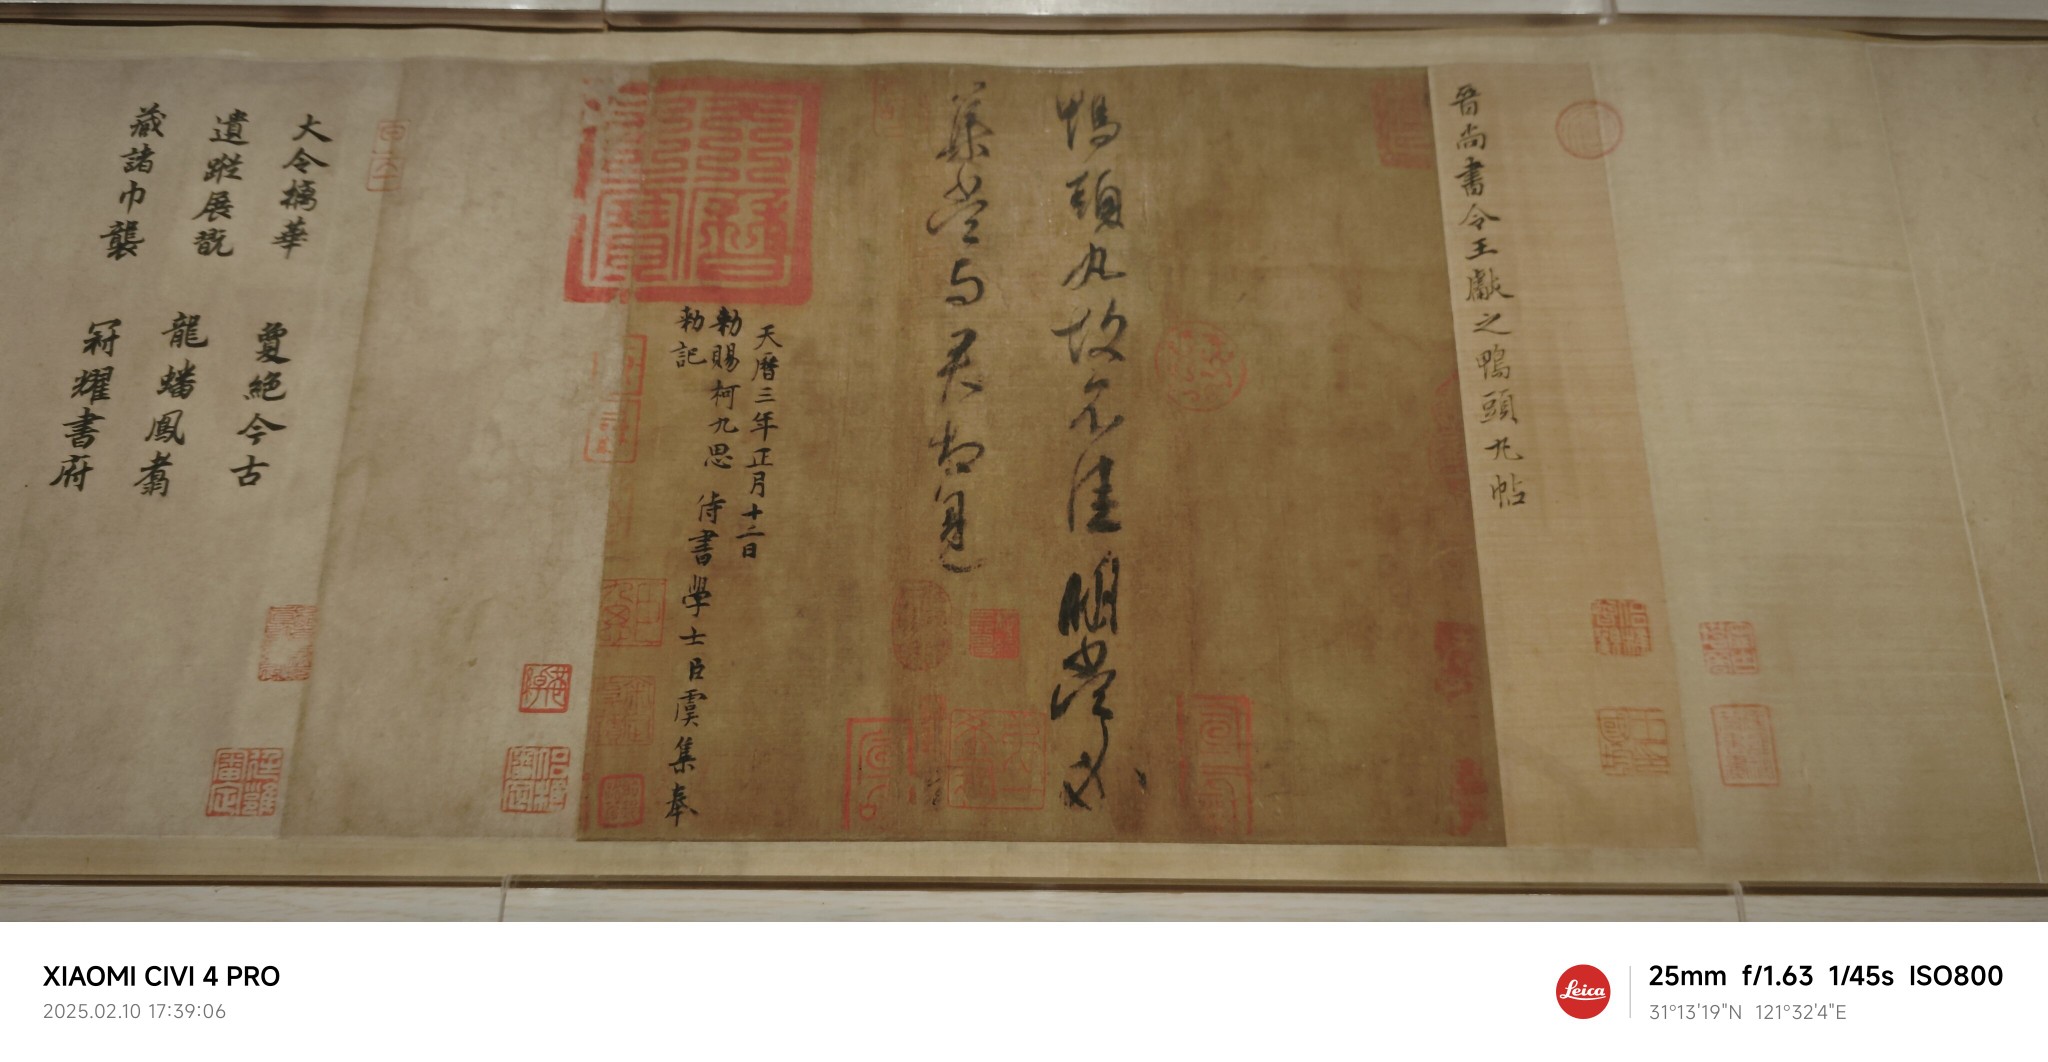 晉尚書令王獻之鴨頭丸帖
鴨頭丸故不佳明當必
集當與君相見
天曆之寶
天曆三年正月十二日
勑賜柯九思侍書學士臣虞集奉
勑記
大令摛華夐絕今古
遺蹤展翫龍蟠鳳翥
藏諸巾襲冠耀書府
XIAOMI CIVI 4 PRO
2025.02.10 17:39:06
Leica
25mm f/1.63 1/45s ISO800
31°13'19"N 121°32'4"E